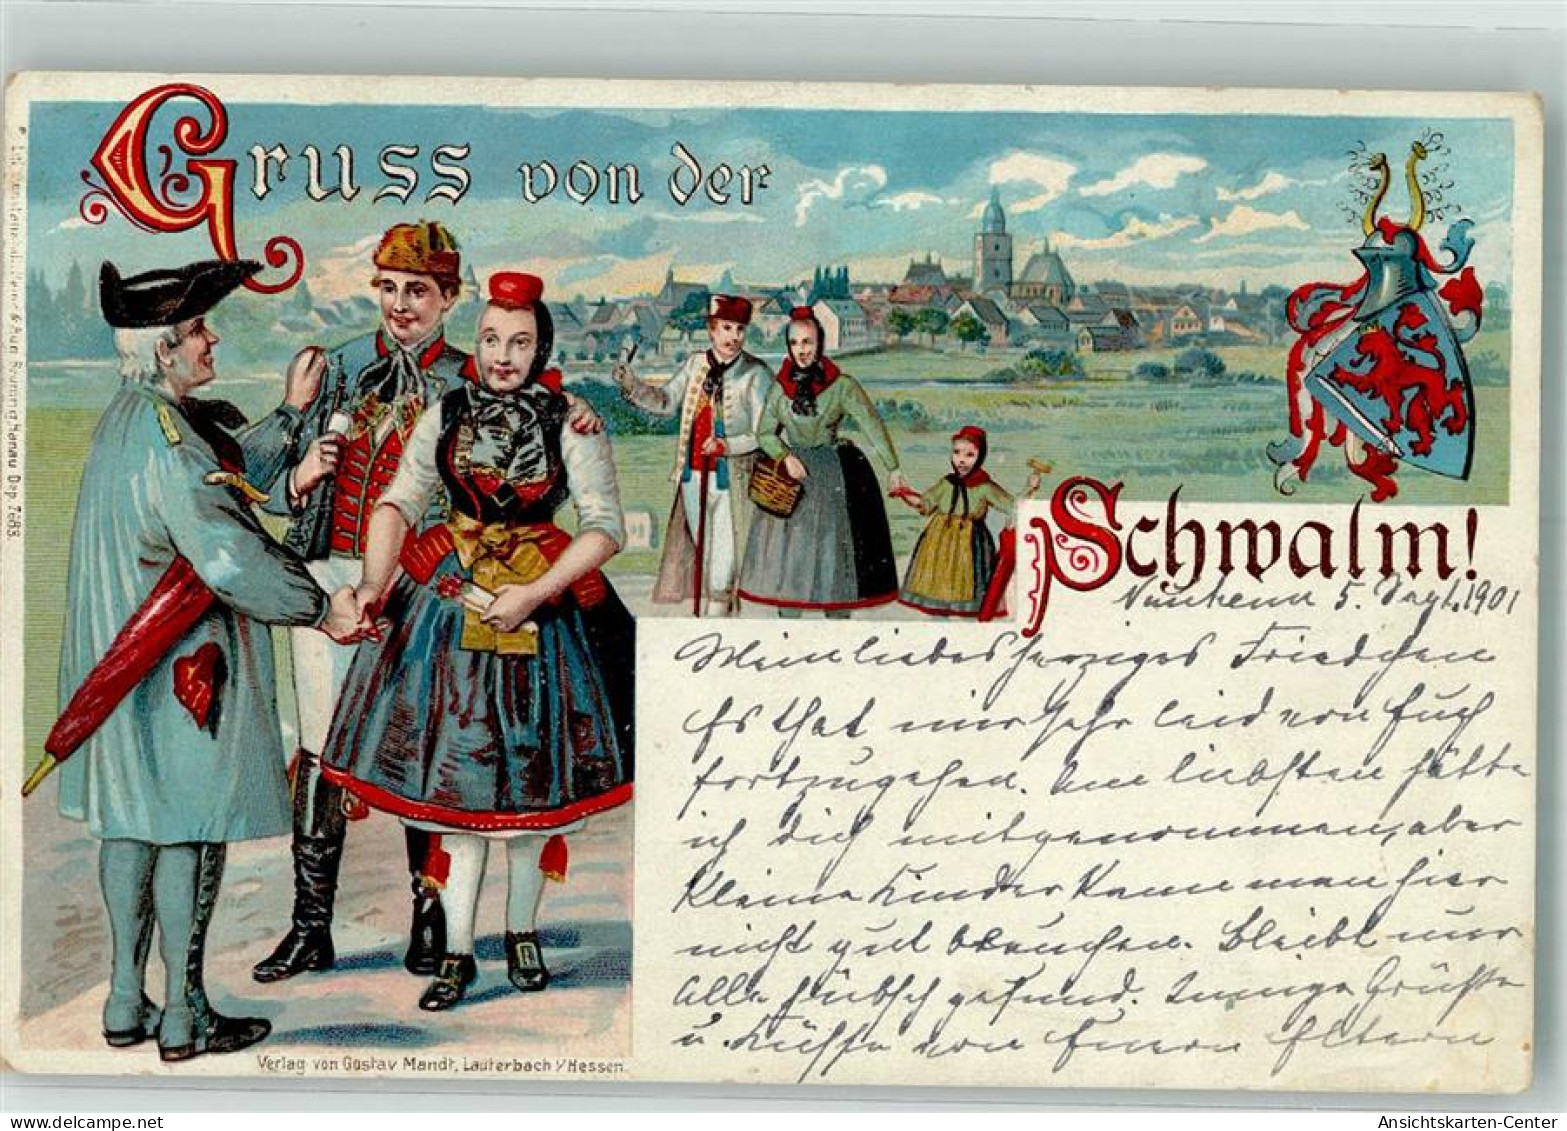 Gruss von der
Schwalm!
5. Sept. 1901
Mein liebes herziges Friedchen
Es that mir sehr leid von Euch
fortzugehen. Am liebsten hätte
ich Dich mitgenommen, aber
kleine Kinder kann man hier
nicht gut brauchen. Bleibt nur
alle hübsch gesund. Innige Grüsse
u. Küsse von Euern Eltern
Verlag von Gustav Mandt, Lauterbach i/Hessen.
Hanau Dep. 7683.
Ansichtskarten-Center